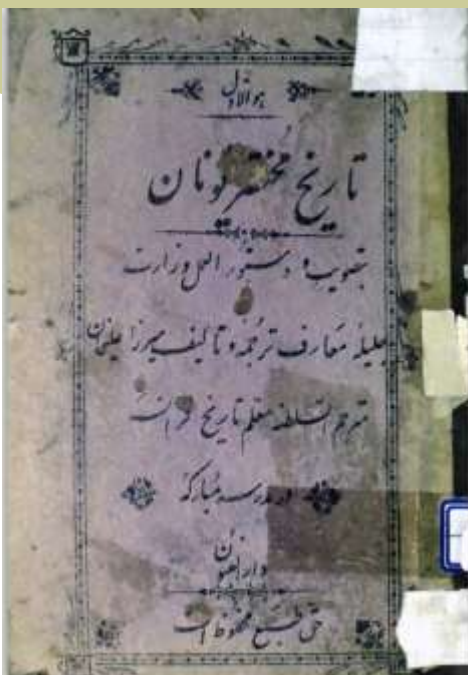 هوالاول
تاریخ مختصر یونان
بتصویب و دستور العمل وزارت
جلیله معارف ترجمه و تالیف میرزا علیخان
مترجم السلطنه معلم تاریخ و
در مدرسه مبارکه
دارالفنون
حق طبع محفوظ است